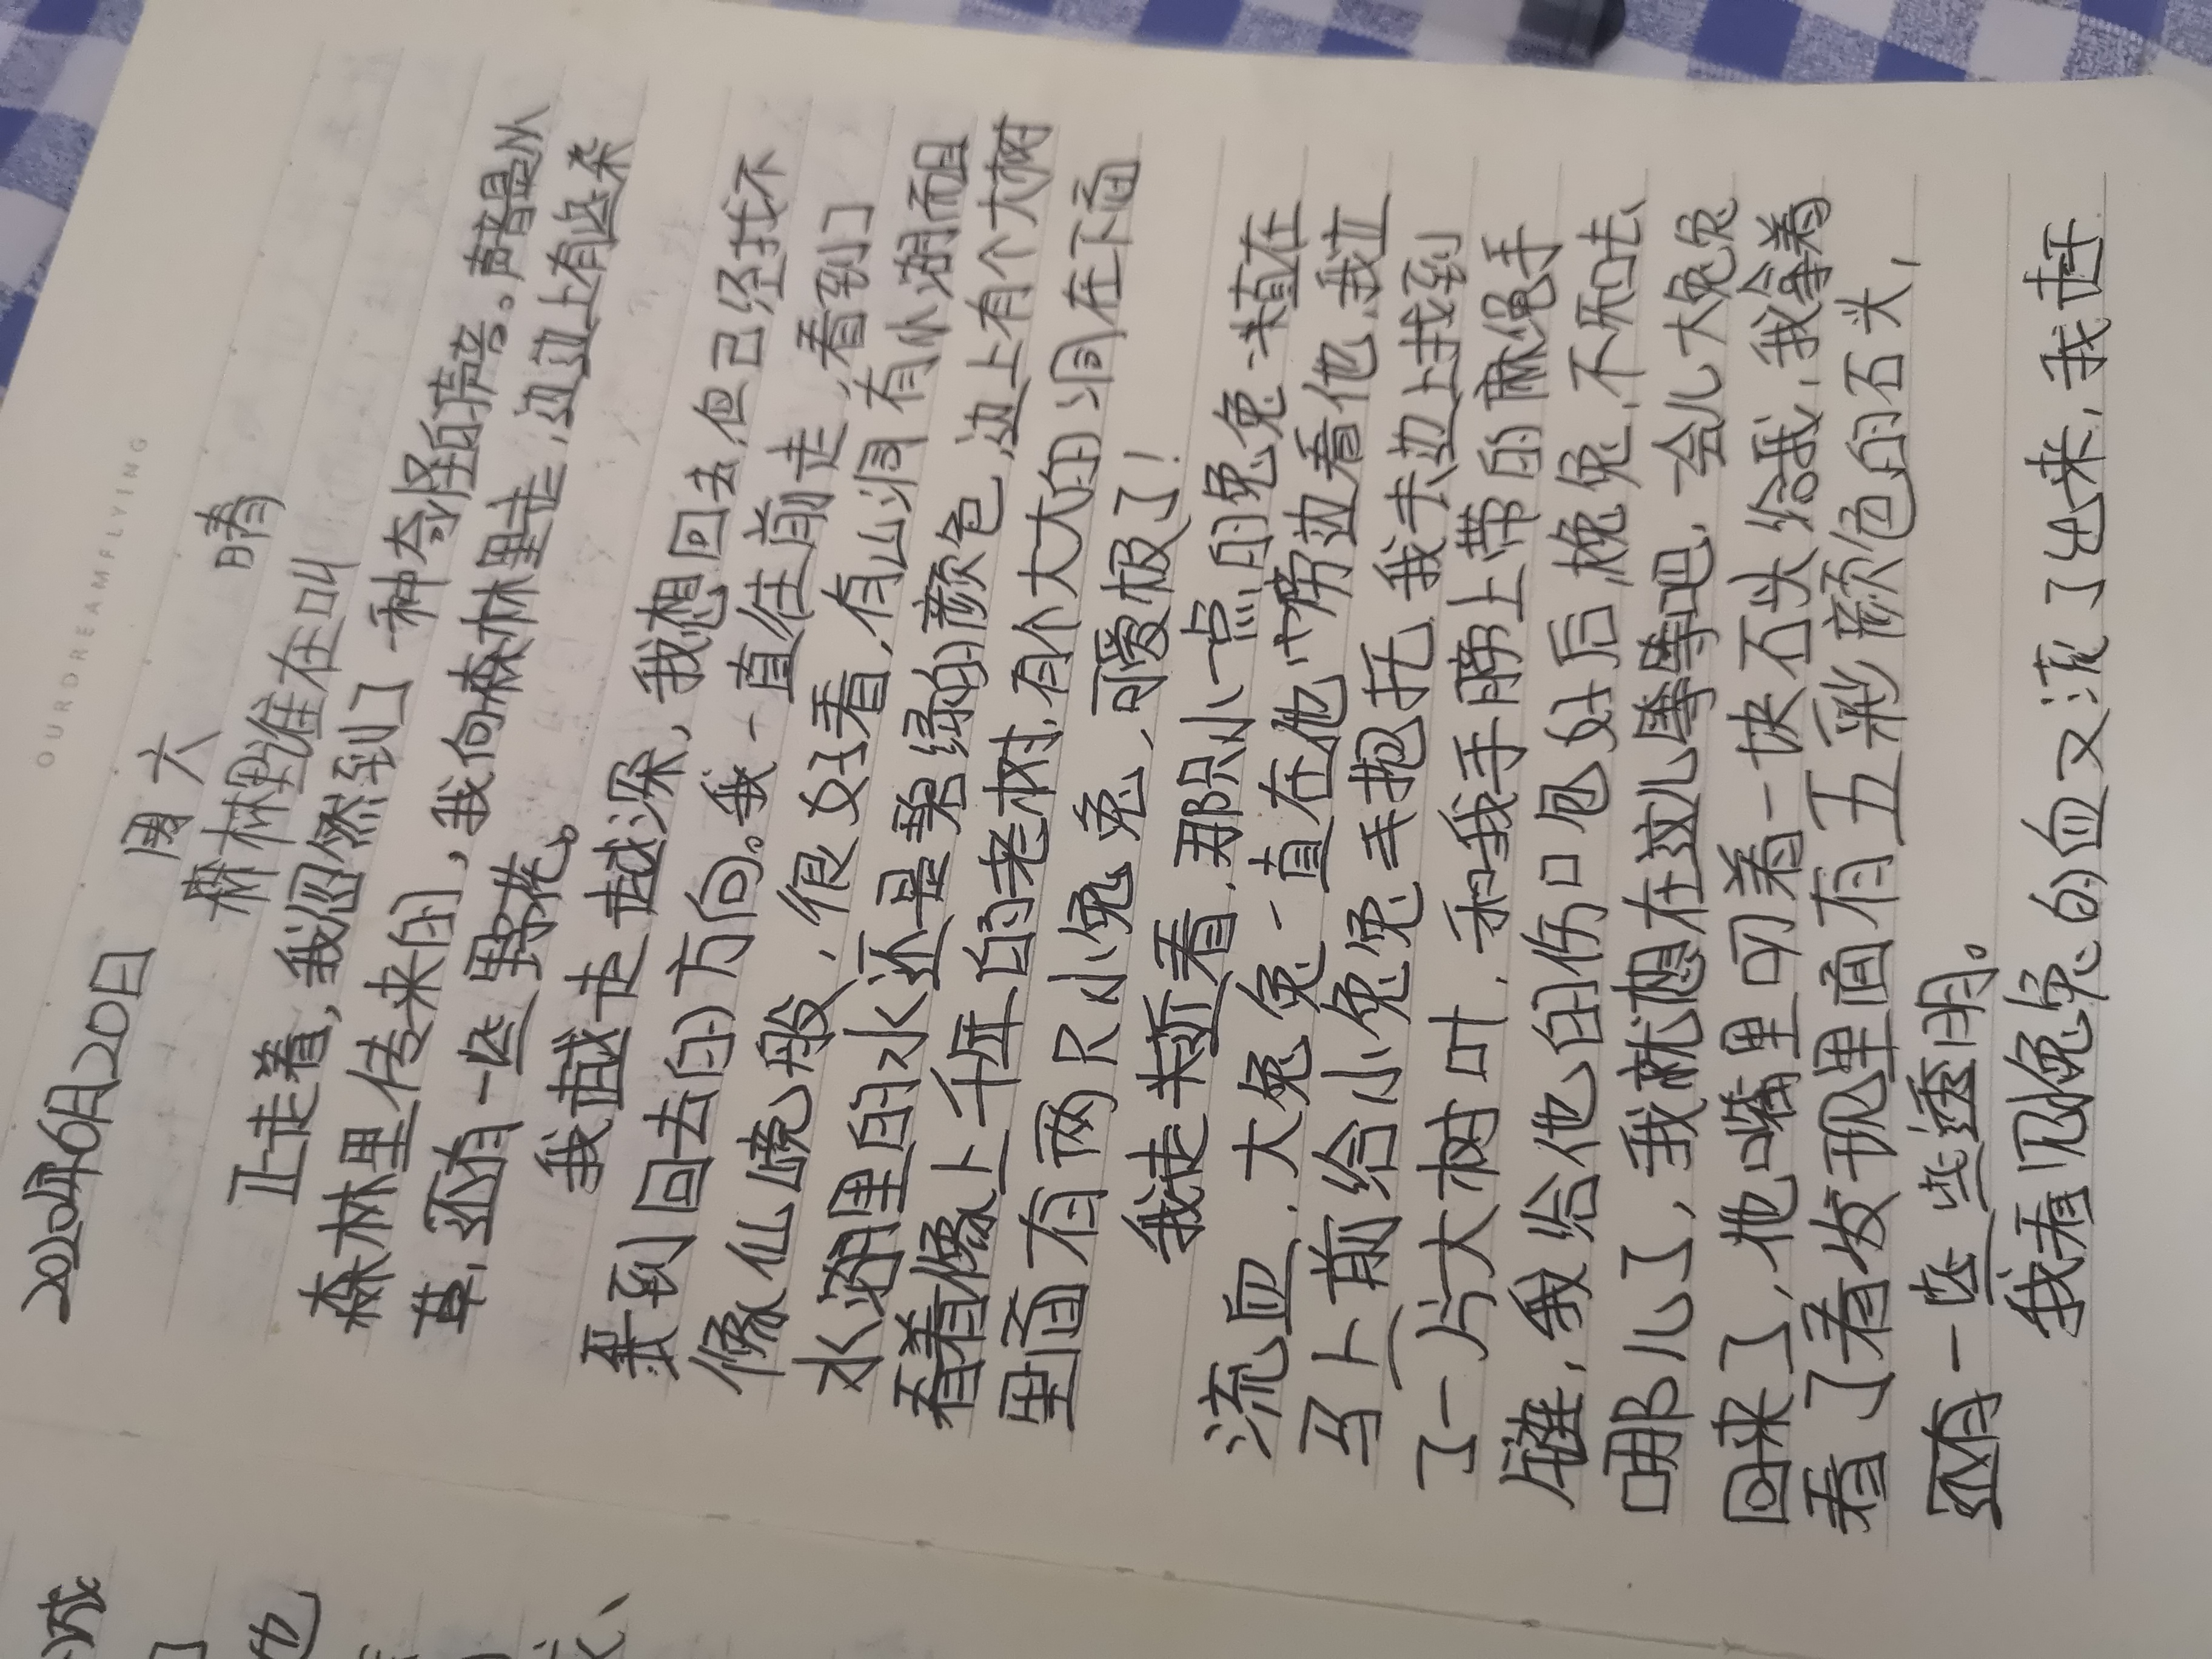 OURDREAMFLYING
2020年6月20日 周六 晴
森林里谁在叫
正走着，我忽然到了一种奇怪的声音。声音是从
森林里传来的，我向森林里走，边边上有些杂
草，还有一些野花。
我越走越深，我想回去，但已经找不
到回去的方向。我一直往前走，看到了
像仙境般，很好看，有山洞有小湖而且
水湖里的水还是碧绿的颜色，边上有个大树
看着像上千年的老树，有个大大的洞在下面
里面有两只小兔兔，可爱极了！
我走进近看，那只小一点的兔兔一直在
流血，大兔兔一直在他旁边看他，我立
马上前给小兔兔手抱扎，我去边上找到
了一片大树叶，和我手膀上带的麻绳手
链，我给他的伤口包好后，大兔兔，不知去
哪儿了，我就想在这儿等等吧，一会儿大兔兔
回来了，他嘴里叼着一块石头给我，我拿着
看了看发现里面有五彩颜色的石头，
还有一些些透明。
我看见兔兔的血又流了出来，我